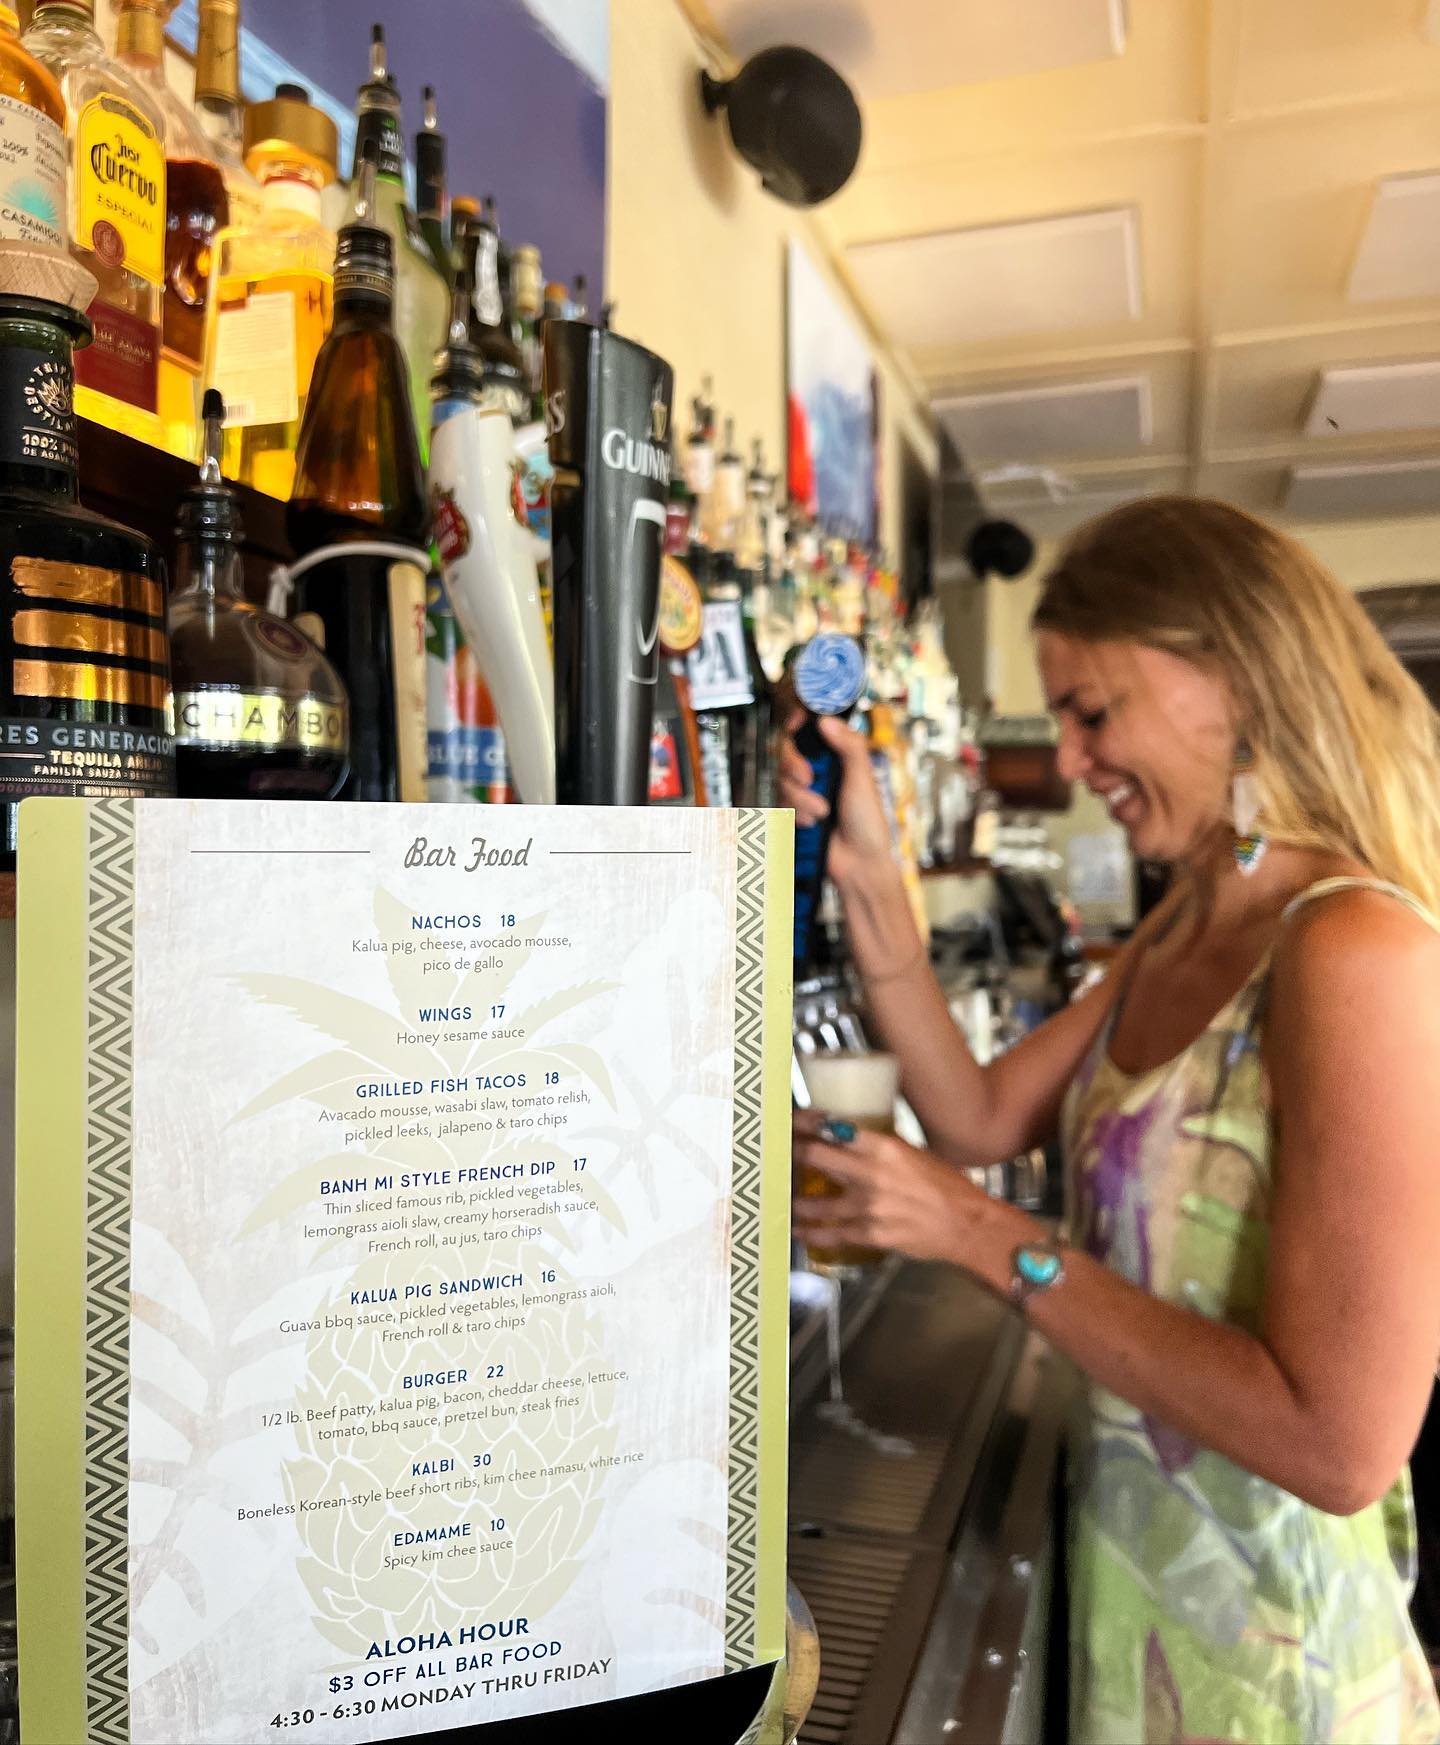 Jose
Cuervo
ESPECIAL
CASAMIGOS
100%
DE AGAVE
TEQUILA AÑEJO
FAMILIA SAUZA
CHAMBO
GUINN
PA
Bar Food
NACHOS 18
Kalua pig, cheese, avocado mousse,
pico de gallo
WINGS 17
Honey sesame sauce
GRILLED FISH TACOS 18
Avacado mousse, wasabi slaw, tomato relish,
pickled leeks, jalapeno & taro chips
BANH MI STYLE FRENCH DIP 17
Thin sliced famous rib, pickled vegetables,
lemongrass aioli slaw, creamy horseradish sauce,
French roll, au jus, taro chips
KALUA PIG SANDWICH 16
Guava bbq sauce, pickled vegetables, lemongrass aioli,
French roll & taro chips
BURGER 22
1/2 lb. Beef patty, kalua pig, bacon, cheddar cheese, lettuce,
tomato, bbq sauce, pretzel bun, steak fries
KALBI 30
Boneless Korean-style beef short ribs, kim chee namasu, white rice
EDAMAME 10
Spicy kim chee sauce
ALOHA HOUR
$3 OFF ALL BAR FOOD
4:30 - 6:30 MONDAY THRU FRIDAY